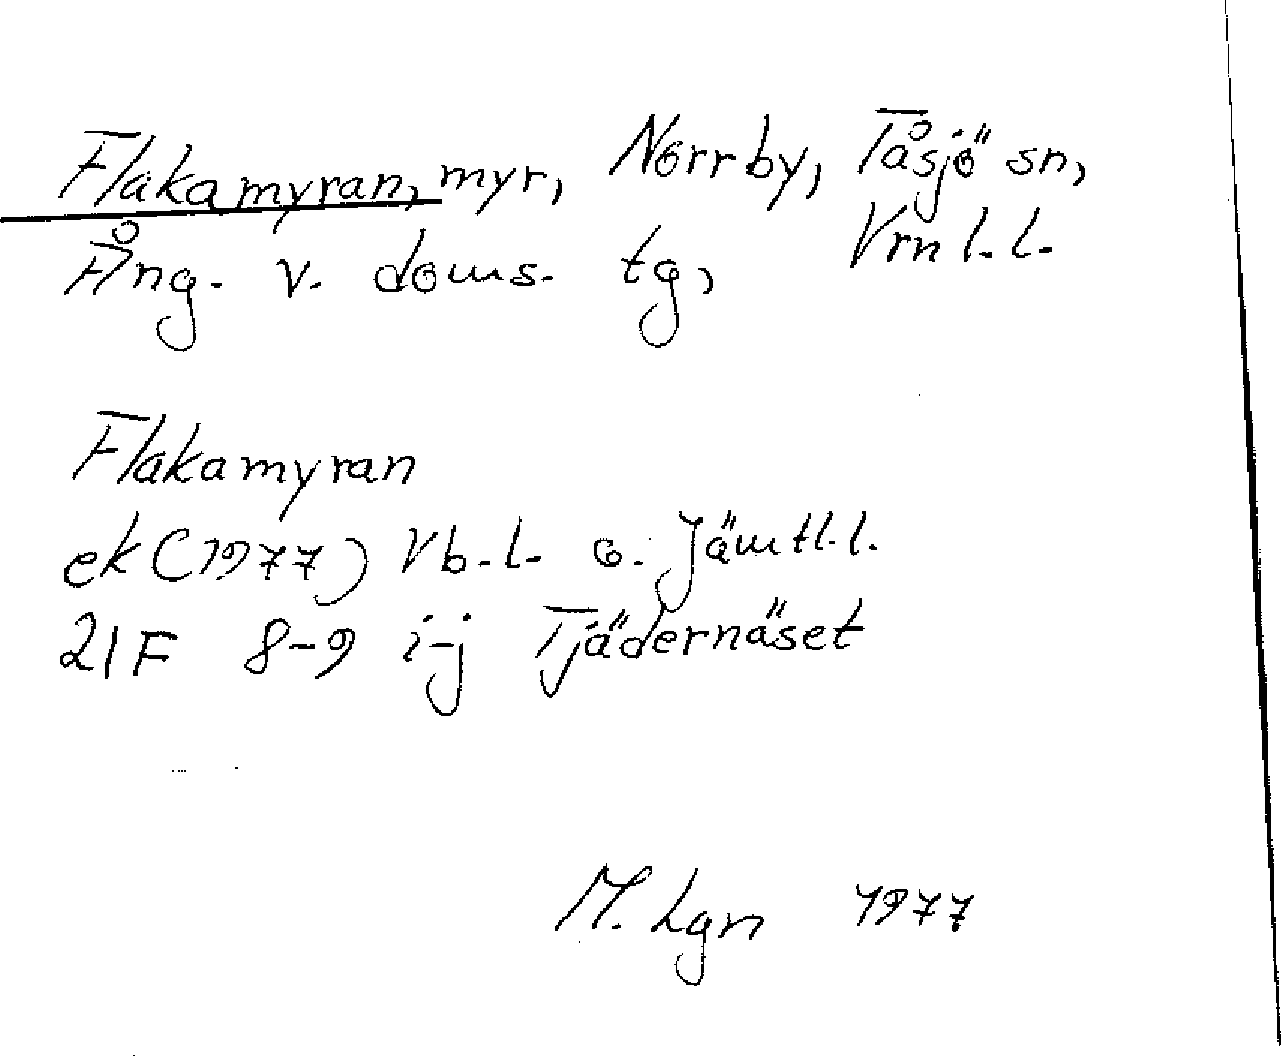 Flakamyran, myr, Norrby, Tåsjö sn,
Ång. v. doms. tg, Vrn l.l.
Flakamyran
ek (1977) Vb.l. o. Jämtl.l.
21F 8-9 i-j Tjädernäset
M. Lgn 1977